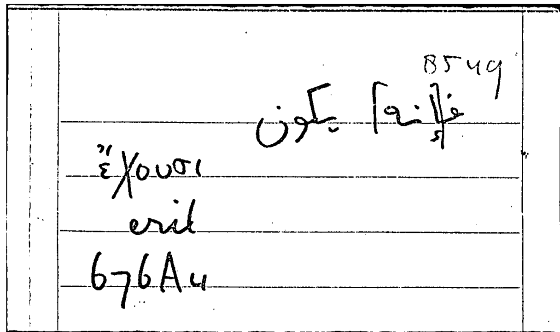 B549
فإ[نه] يكون
ἔχουσι
erit
676A4